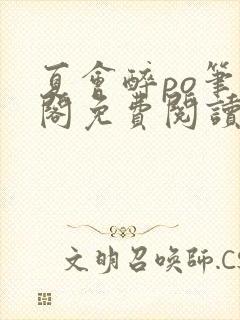 夏會醉po筆
閣免費閱讀
文明召喚師.CS